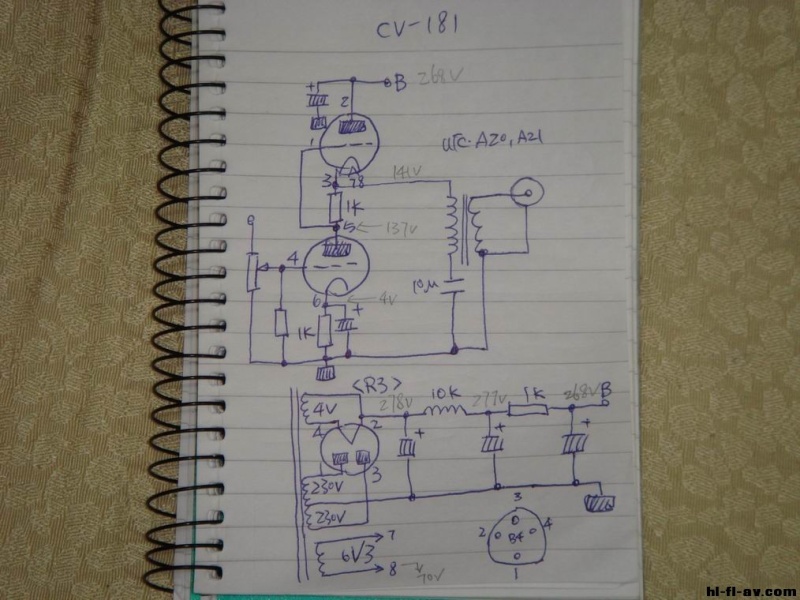 CV-181
B 268V
+
2
1
UTC. A20, A21
3 78 141V
1K
5 ← 137V
4
10μ
6 ← 4V
+
1K
<R3>
4V 278V 10K 277V 1K 268V B
4 2
+ + +
3
230V
230V
7
6V3
8
70V
3
2 B4 4
1
hi-fi-av.com